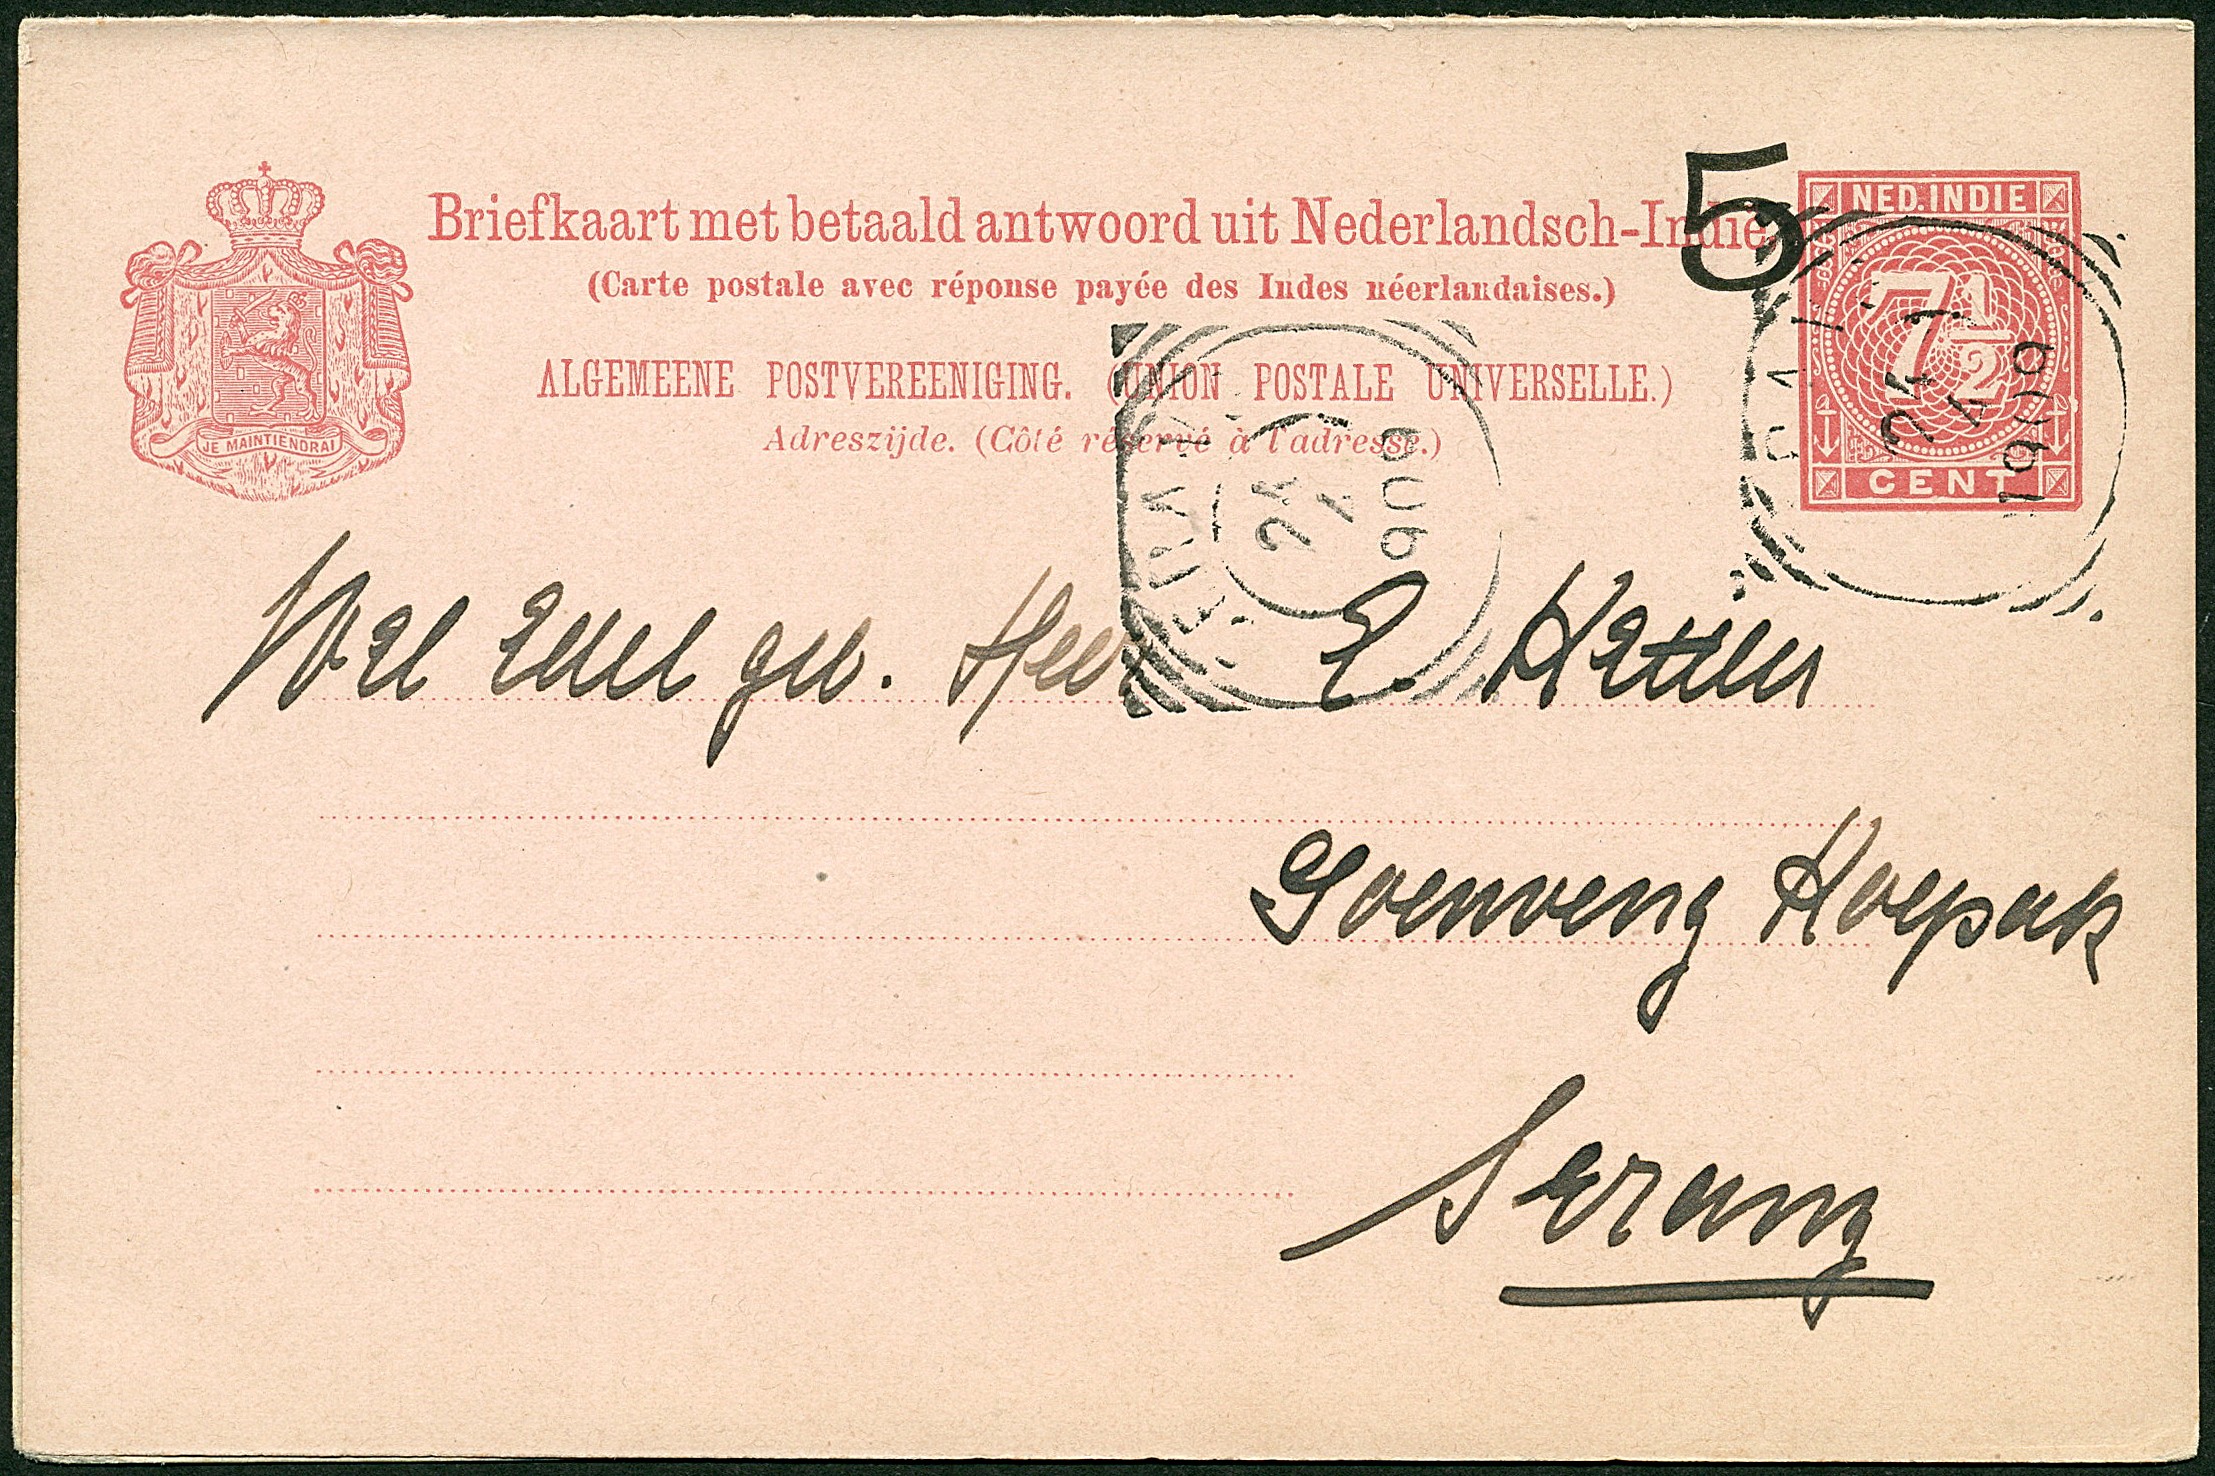 5
NED. INDIE
7½
CENT
Briefkaart met betaald antwoord uit Nederlandsch-Indië.
(Carte postale avec réponse payée des Indes néerlandaises.)
ALGEMEENE POSTVEREENIGING. (UNION POSTALE UNIVERSELLE.)
Adreszijde. (Côté réservé à l'adresse.)
JE MAINTIENDRAI
24
1909
24
1909
Wel Edel geb. Heer E. Ketter
Goenoeng Koepak
Serang